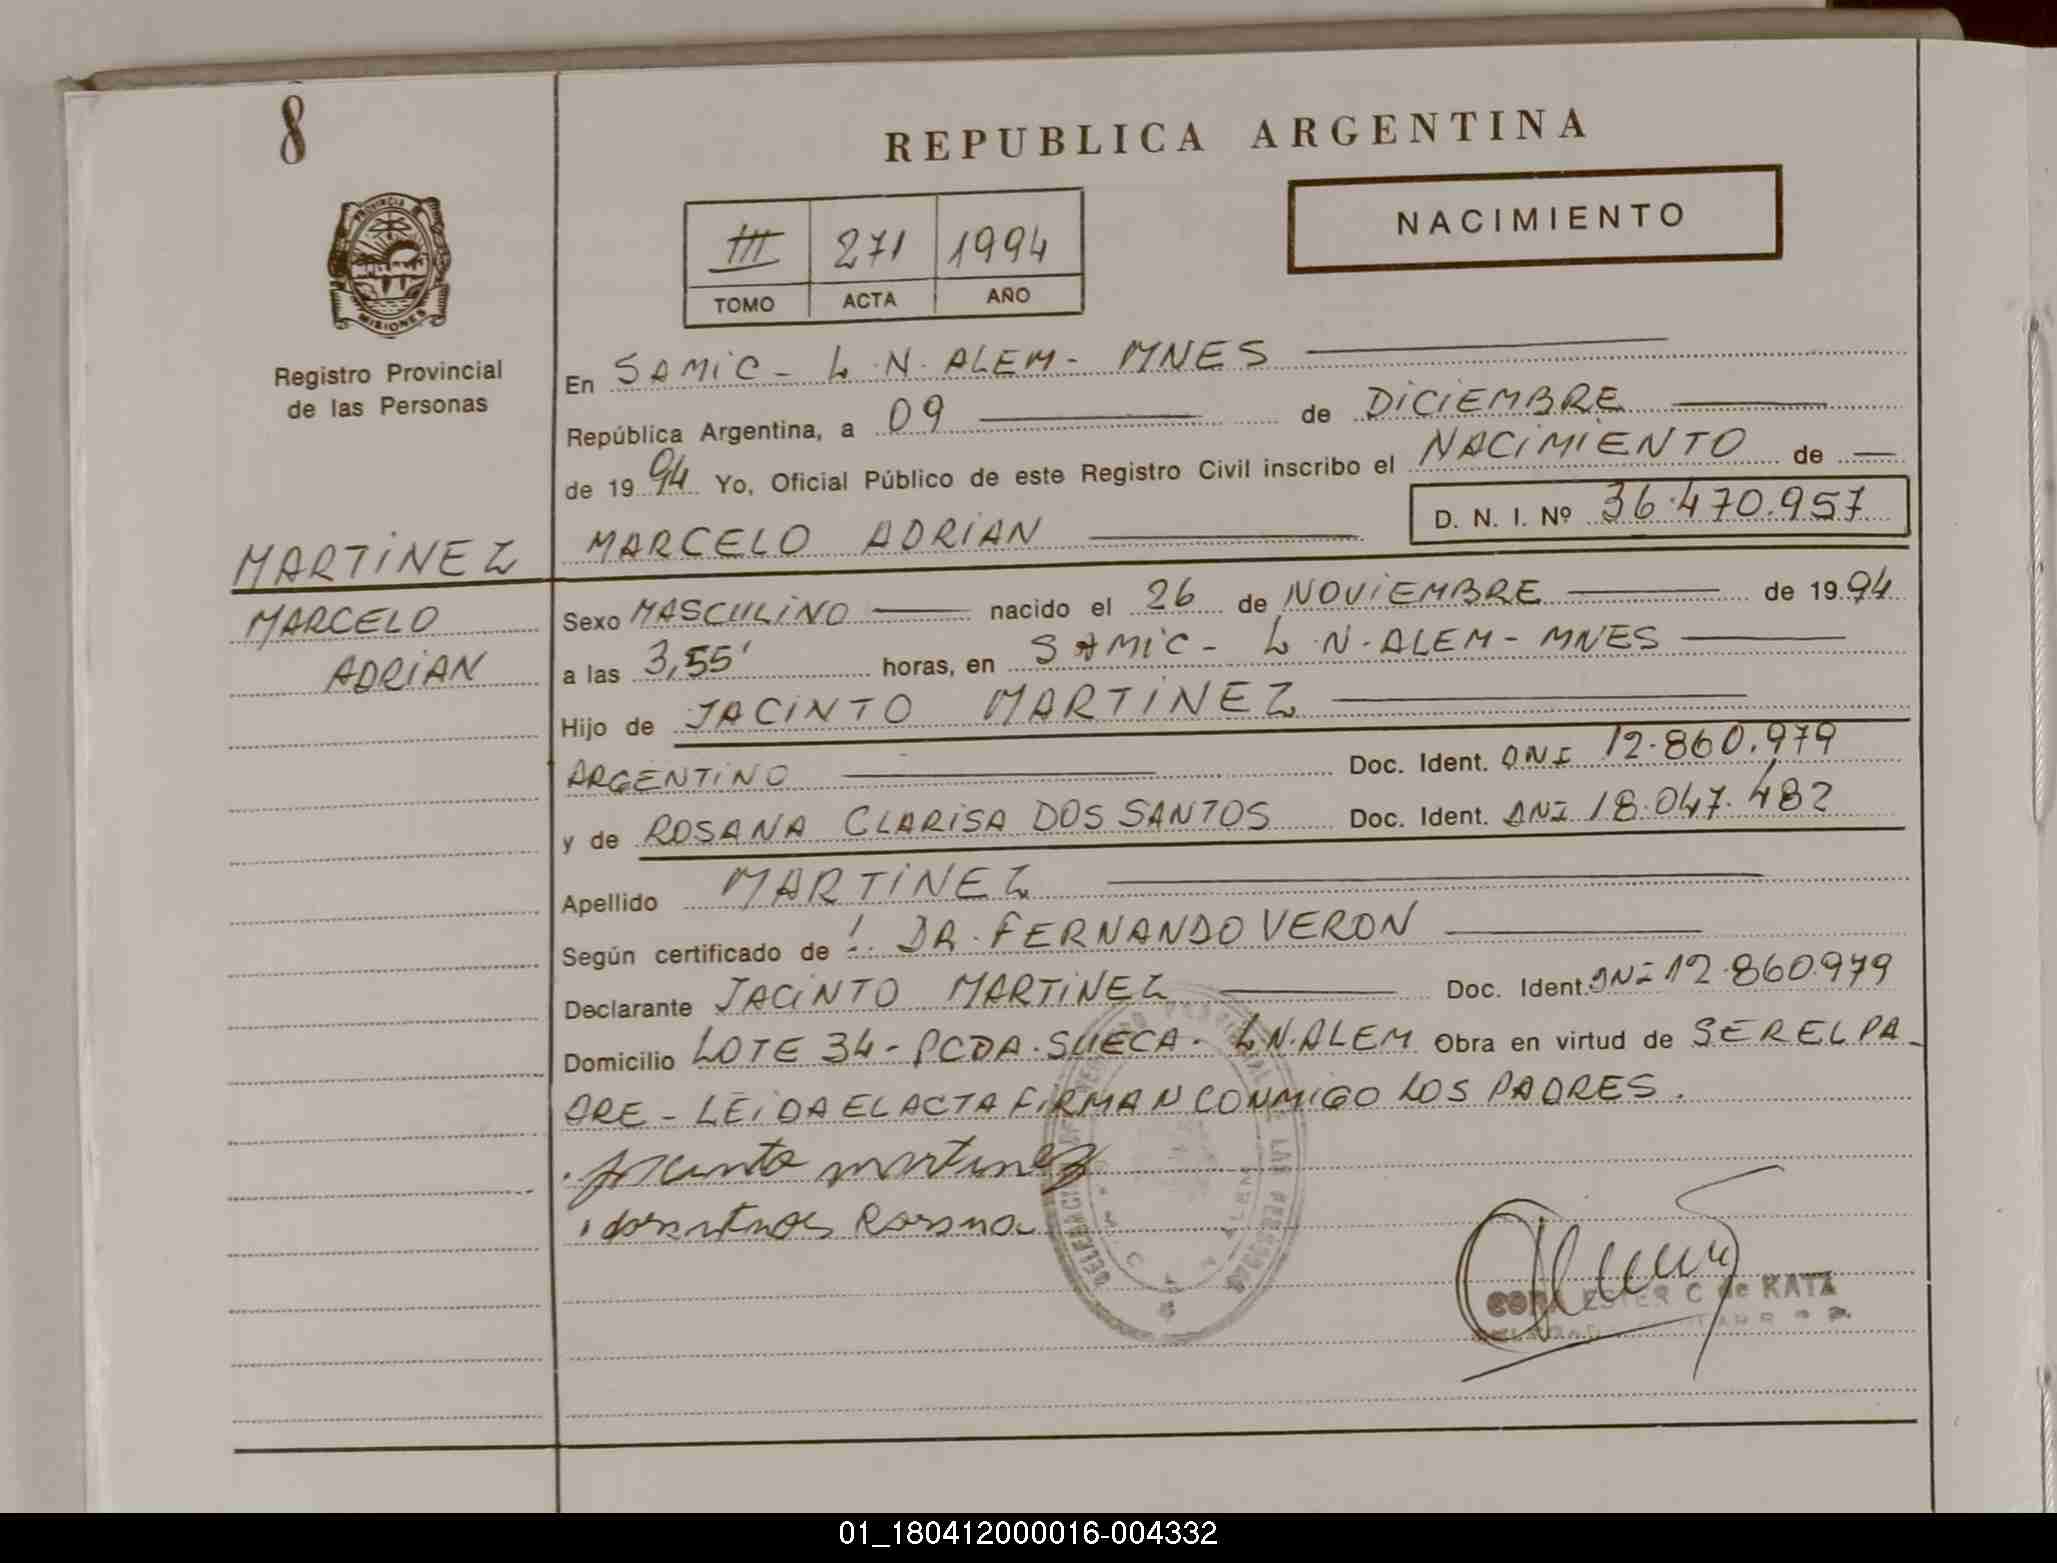 8
REPUBLICA ARGENTINA
PROVINCIA DE
MISIONES
Registro Provincial
de las Personas
NACIMIENTO
III 271 1994
TOMO ACTA AÑO
En SAMIC - L.N. ALEM - MNES
República Argentina, a 09 de DICIEMBRE
de 1994 Yo, Oficial Público de este Registro Civil inscribo el NACIMIENTO de
D. N. I. Nº 36.470.957
MARTINEZ MARCELO ADRIAN
MARCELO
ADRIAN
Sexo MASCULINO nacido el 26 de NOVIEMBRE de 1994
a las 3,55' horas, en SAMIC - L.N. ALEM - MNES
Hijo de JACINTO MARTINEZ
ARGENTINO Doc. Ident. DNI 12.860.979
y de ROSANA CLARISA DOS SANTOS Doc. Ident. DNI 18.047.482
Apellido MARTINEZ
Según certificado de : DR. FERNANDO VERON
Declarante JACINTO MARTINEZ Doc. Ident. DNI 12.860.979
Domicilio LOTE 34 - PCDA. SUECA. L.N. ALEM Obra en virtud de SER EL PA-
DRE - LEIDA EL ACTA FIRMAN CONMIGO LOS PADRES.
Jacinto martinez
dossantos Rosana
ESTER C de KATZ
01_180412000016-004332